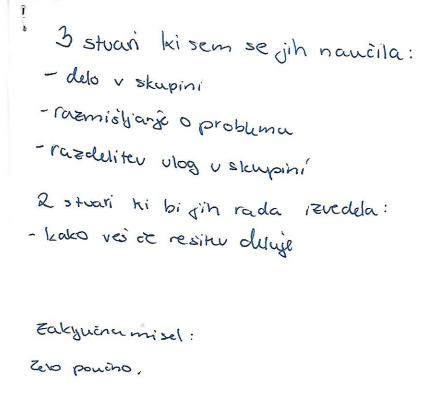 3 stvari ki sem se jih naučila:
- delo v skupini
- razmišljanje o problemu
- razdelitev vlog v skupini
2 stvari ki bi jih rada izvedela:
- kako veš če rešitev deluje
Zakjučna misel:
Zelo poučno.